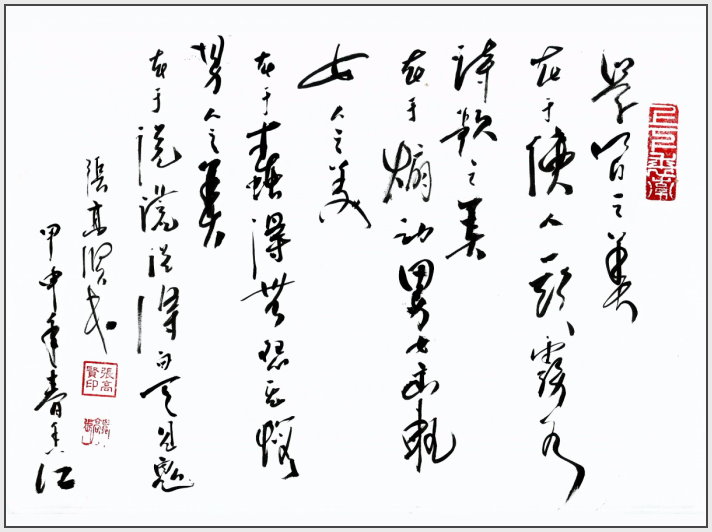 學問之美
在于使人一頭霧水
詩歌之美
在于煽動男女出軌
女人之美
在于蠢得無怨無悔
男人之美
在于說謊說得白天見鬼
張高賢
甲申年春香江
張高賢印